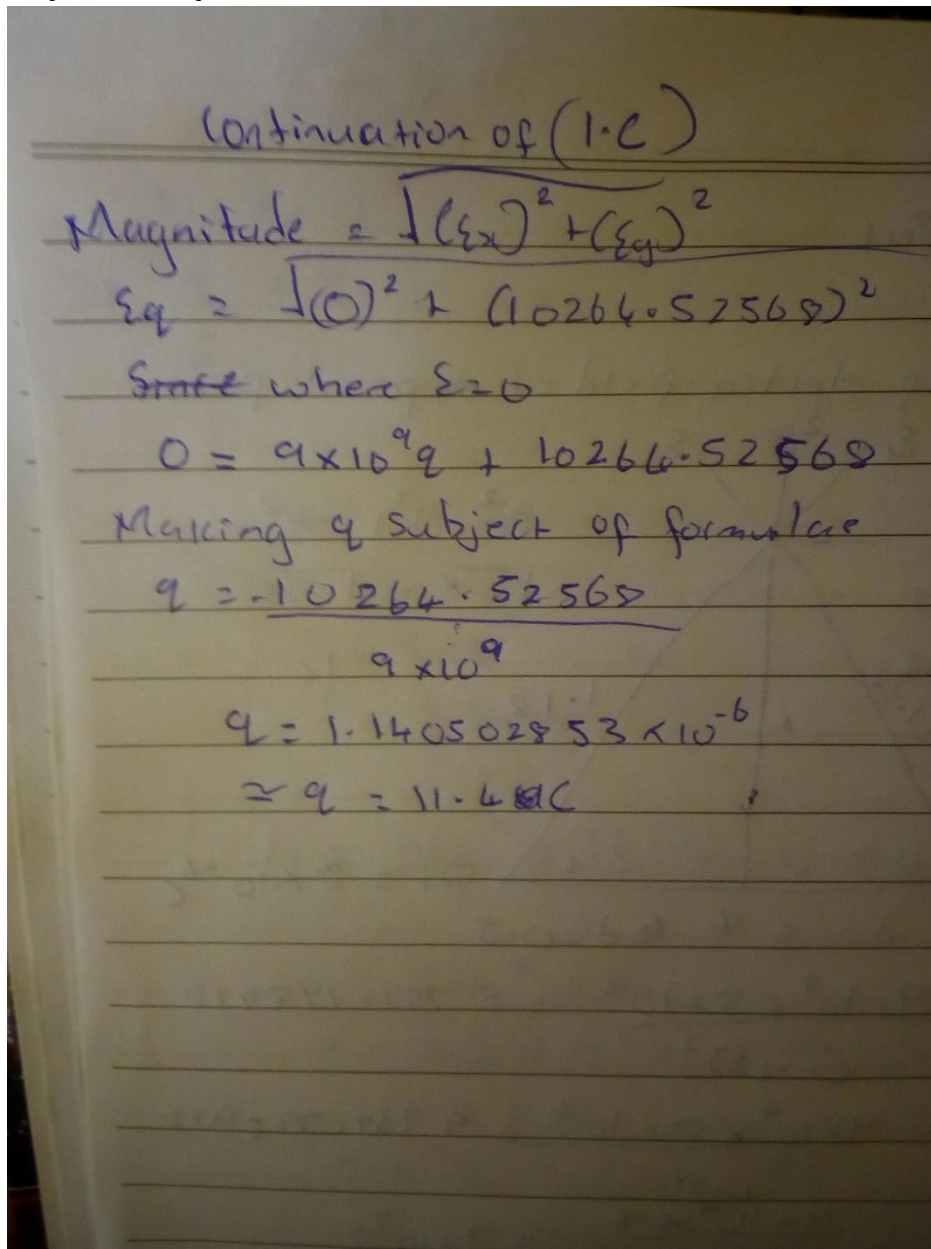 Continuation of (1.C)
Magnitude = √(Ex)² + (Ey)²
Eq = √(0)² + (10264.52568)²
Since where E=0
0 = 9×10⁹q + 10264.52568
Making q subject of formulae
q = -10264.52568
9×10⁹
q = 1.140502853×10⁻⁶
≃ q = 11.4 C